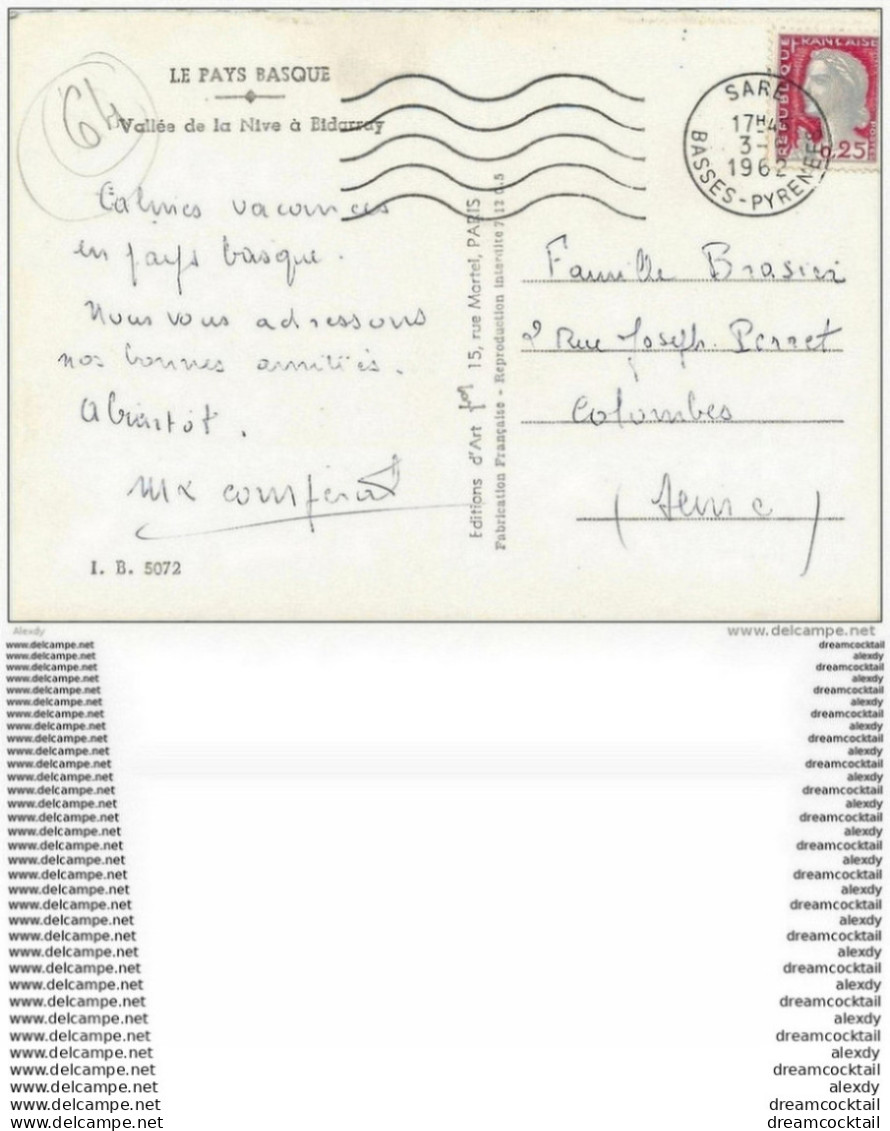 LE PAYS BASQUE
Vallée de la Nive à Bidarray
64
Calmes vacances
en pays basque.
Nous vous adressons
nos bonnes amitiés.
A bientôt.
I. B. 5072
Editions d'Art 15, rue Martel, PARIS
Fabrication Française - Reproduction interdite
REPUBLIQUE FRANÇAISE
0,25
SARE
17H
3
196
BASSES-PYRENEES
Famille Brasier
2 Rue Joseph Perret
Colombes
(Seine)
Alexdy
www.delcampe.net
www.delcampe.net dreamcocktail
www.delcampe.net alexdy
www.delcampe.net dreamcocktail
www.delcampe.net alexdy
www.delcampe.net dreamcocktail
www.delcampe.net alexdy
www.delcampe.net dreamcocktail
www.delcampe.net alexdy
www.delcampe.net dreamcocktail
www.delcampe.net alexdy
www.delcampe.net dreamcocktail
www.delcampe.net alexdy
www.delcampe.net dreamcocktail
www.delcampe.net alexdy
www.delcampe.net dreamcocktail
www.delcampe.net alexdy
www.delcampe.net dreamcocktail
www.delcampe.net alexdy
www.delcampe.net dreamcocktail
www.delcampe.net alexdy
www.delcampe.net dreamcocktail
www.delcampe.net alexdy
www.delcampe.net dreamcocktail
www.delcampe.net alexdy
www.delcampe.net dreamcocktail
www.delcampe.net alexdy
www.delcampe.net dreamcocktail
www.delcampe.net alexdy
www.delcampe.net dreamcocktail
www.delcampe.net alexdy
www.delcampe.net dreamcocktail
www.delcampe.net alexdy
www.delcampe.net dreamcocktail
www.delcampe.net dreamcocktail